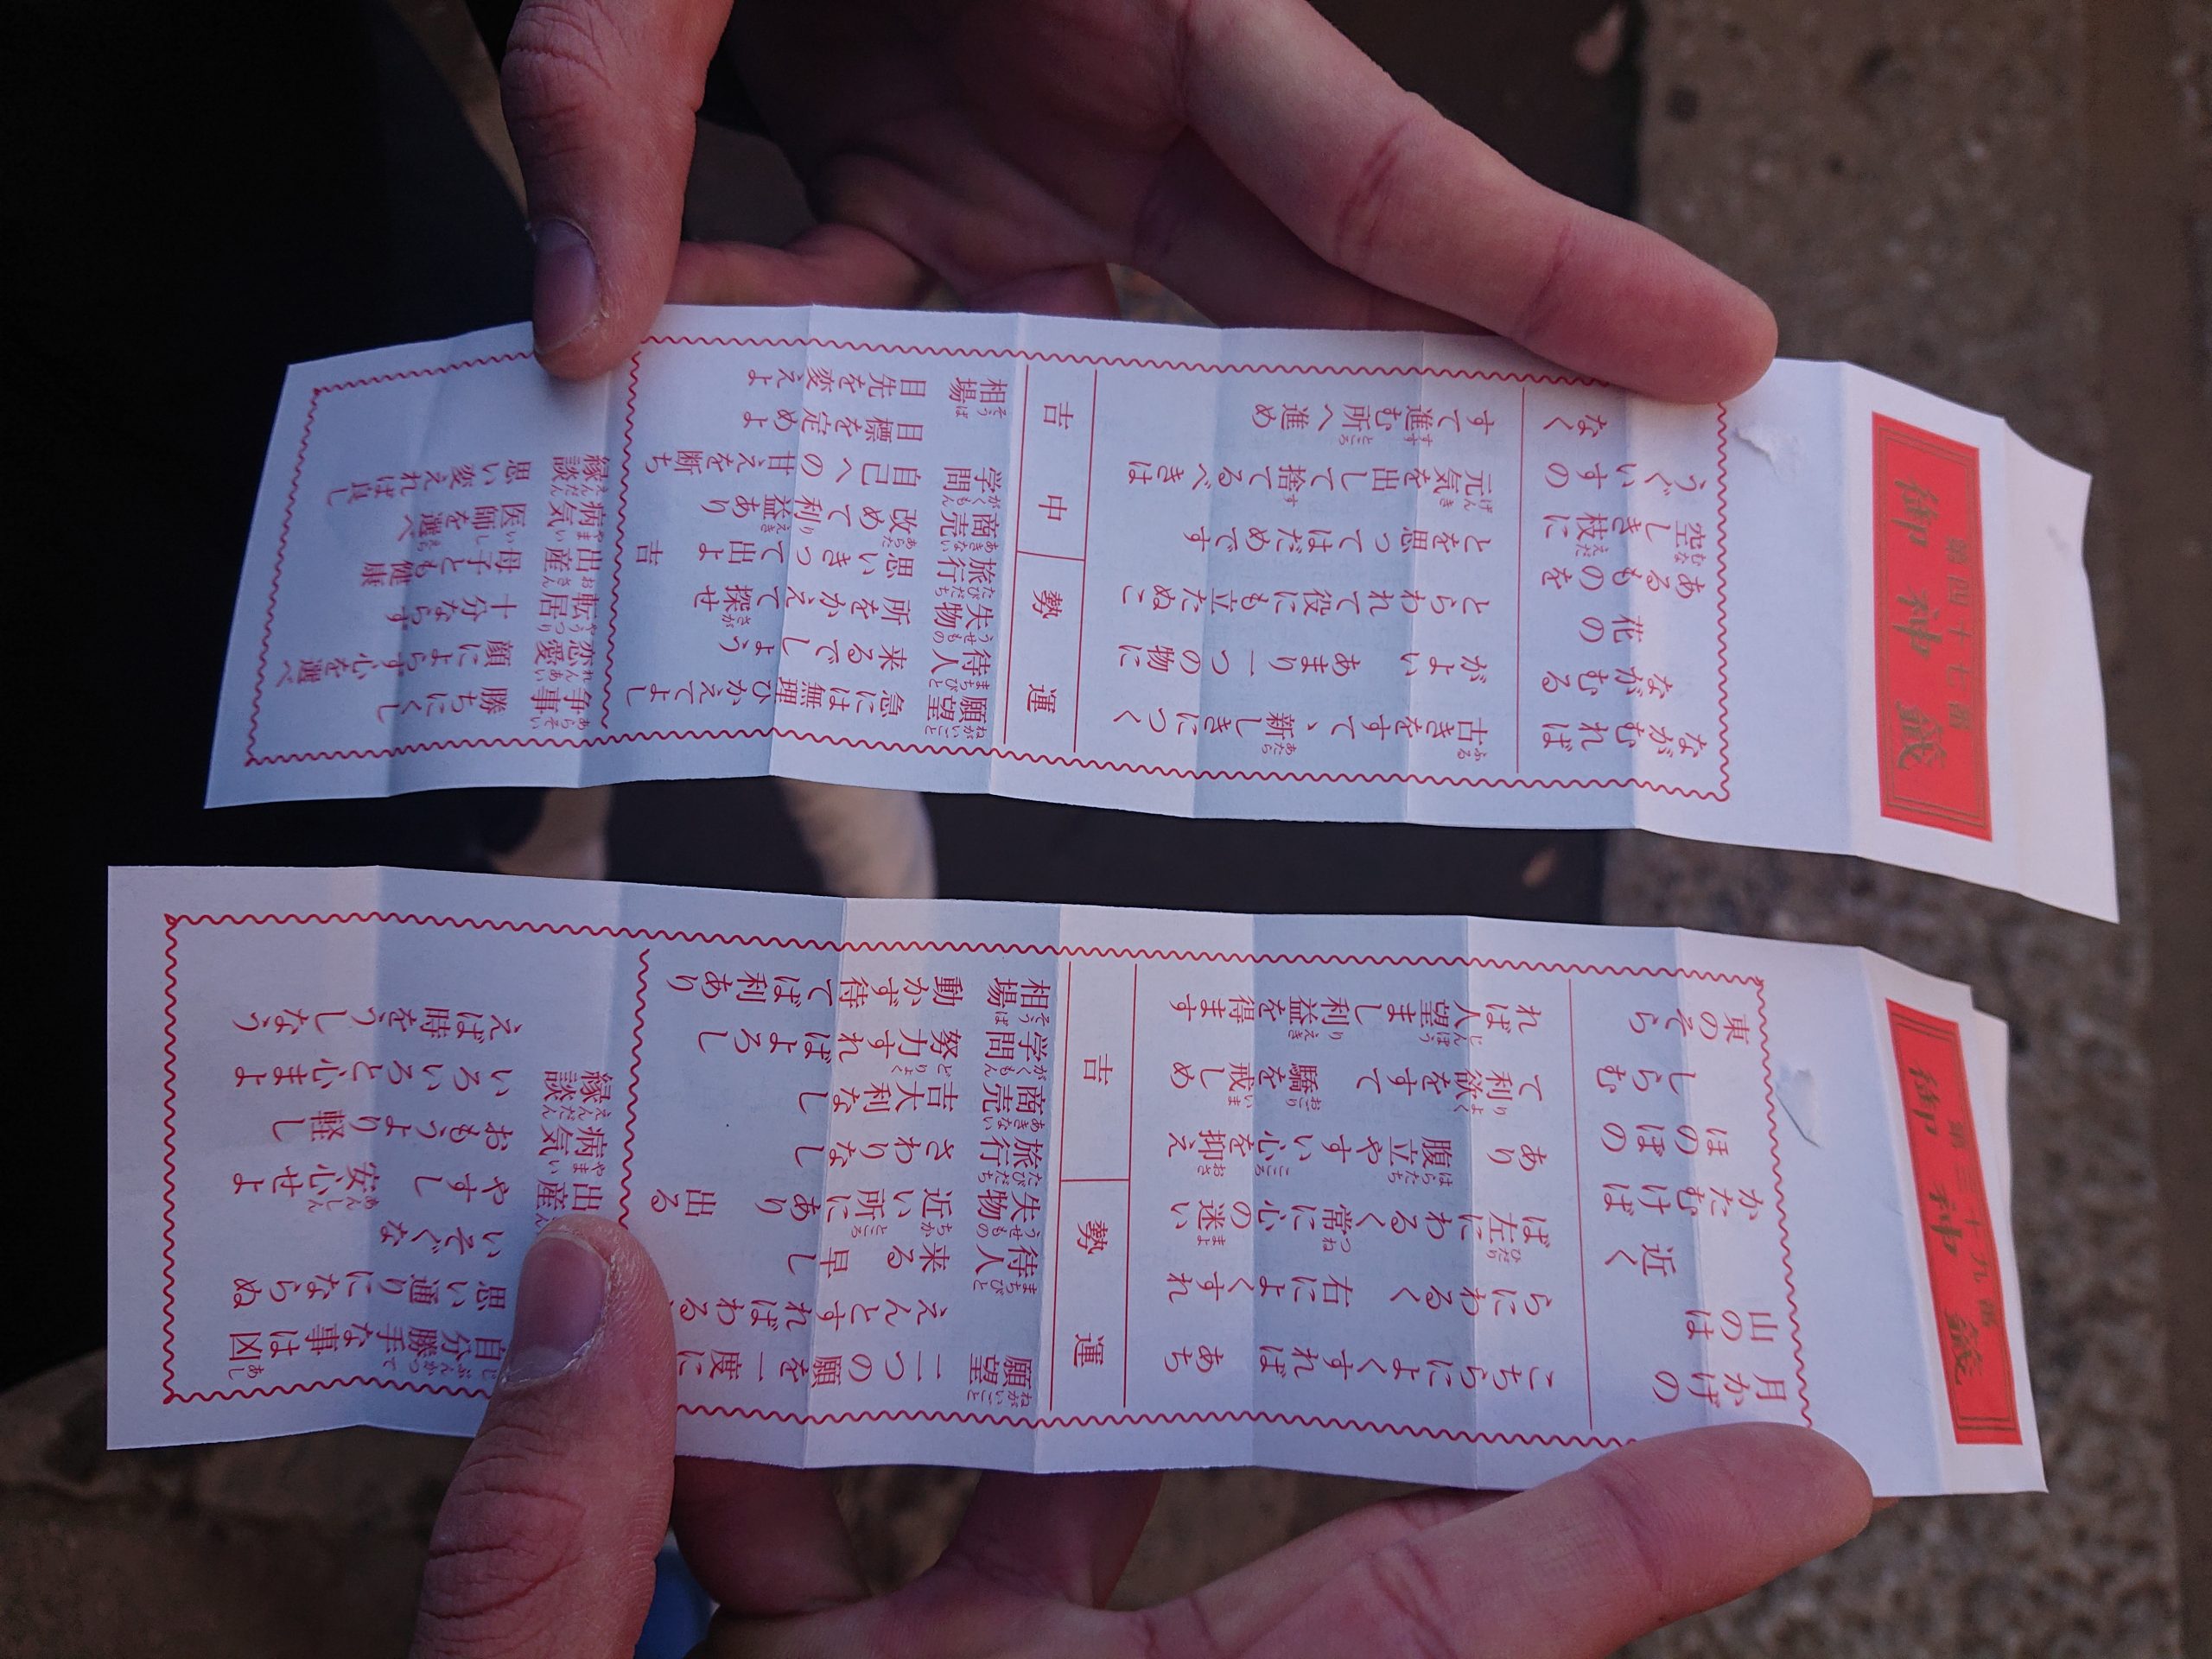 第三十九番
御神籤
月かげの
山のは
近く
かたむけば
ほのぼの
しらむ
東のそら
こちらによくすればあち
らにわるく 右によくすれ
ば左にわるく常に心の迷い
あり 腹立やすい心を抑え
て利欲をすて驕を戒しめ
れば人望まし利益を得ます
運勢 吉
願望 二つの願を一度に
えんとすればわる
待人 来る 早し
失物 近い所にあり 出る
旅行 さわりなし
商売 吉大利なし
学問 努力すればよろし
相場 動かず待てば利あり
自分勝手な事は凶
思い通りにならぬ
いそぐな
出産 やすし 安心せよ
病気 おもうより軽し
縁談 いろいろと心まよ
えば時をうしなう
第四十七番
御神籤
ながむれば
ながむる
花の
あるものを
空しき枝に
うぐいすの
なく
古きをすて、新しきにつく
がよい あまり一つの物に
とらわれて役にも立たぬこ
とを思ってはだめです
元気を出して捨てるべきは
すて進む所へ進め
運勢 中吉
願望 急には無理 ひかえてよし
待人 来るでしょう
失物 所をかえて探せ
旅行 思いきって出よ 吉
商売 改めて利益あり
学問 自己への甘えを断ち
目標を定めよ
相場 目先を変えよ
争事 勝ちにくし
恋愛 顔によらず心を選べ
転居 十分ならず
出産 母子とも健康
病気 医師を選べ
縁談 思い変えれば良し